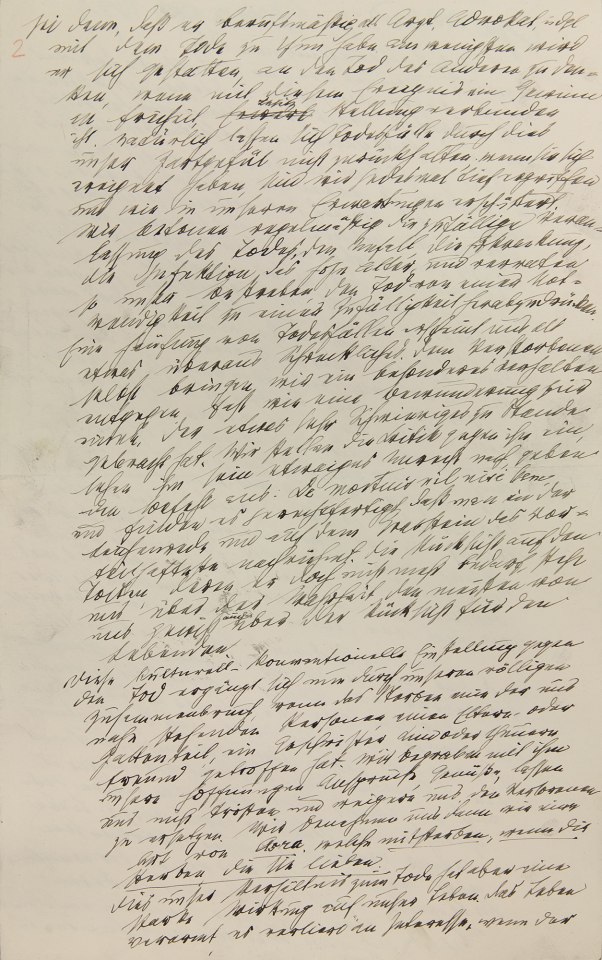 sei denn, daß er berufsmäßig als Arzt, Advokat, u dgl
2 mit dem Tode zu thun habe. Am wenigsten wird
er sich gestatten, an den Tod des Anderen zu den=
ken, wenn mit diesem Ereignis ein Gewinn
an Freiheit, Besitz, Stellung verbunden
ist. Natürlich lassen sich Todesfälle durch dies
unser Zartgefül nicht zurückhalten; wenn sie sich
ereignet haben, sind wir jedesmal tief ergriffen
und wie in unseren Erwartungen erschüttert.
Wir betonen regelmäßig die zufällige Veran=
lassung des Todes, den Unfall, die Erkrankung,
die Infektion, das hohe Alter, und verraten
so unser Bestreben, den Tod von einer Not=
wendigkeit zu einer Zufälligkeit herabzudrücken.
Eine Häufung von Todesfällen erscheint uns als
etwas überaus Schreckliches. Dem Verstorbenen
selbst bringen wir ein besonderes Verhalten
entgegen, fast wie eine Bewunderung für
einen, der etwas sehr Schwieriges zu Stande
gebracht hat. Wir stellen die Kritik gegen ihn ein,
sehen ihm sein etwaiges Unrecht nach, geben
den Befehl aus: De mortuis nil nisi bene,
und finden es gerechtfertigt, daß man in der
Leichenrede und auf dem Grabstein das Vor=
teilhafteste nachrühmt. Die Rücksicht auf den
Todten, deren er doch nicht mehr bedarf, steht
uns über der Wahrheit, den meisten von
uns gewiß auch über der Rücksicht für den
Lebenden.
Diese kulturell-konventionelle Einstellung gegen
den Tod ergänzt sich nun durch unseren völligen
Zusammenbruch, wenn das Sterben eine der uns
nahe stehenden Personen, einen Eltern- oder
Gattenteil, ein Geschwister, Kind oder theuern
Freund getroffen hat. Wir begraben mit ihm
unsere Hoffnungen, Ansprüche, Genüße, lassen
uns nicht trösten und weigern uns, den Verlorenen
zu ersetzen. Wir benehmen uns dann wie eine
Art von Asra, welche mitsterben, wenn die
sterben, die sie lieben.
Dies unser Verhältnis zum Tode hat aber eine
starke Wirkung auf unser Leben. Das Leben
verarmt, es verliert an Interesse, wenn der